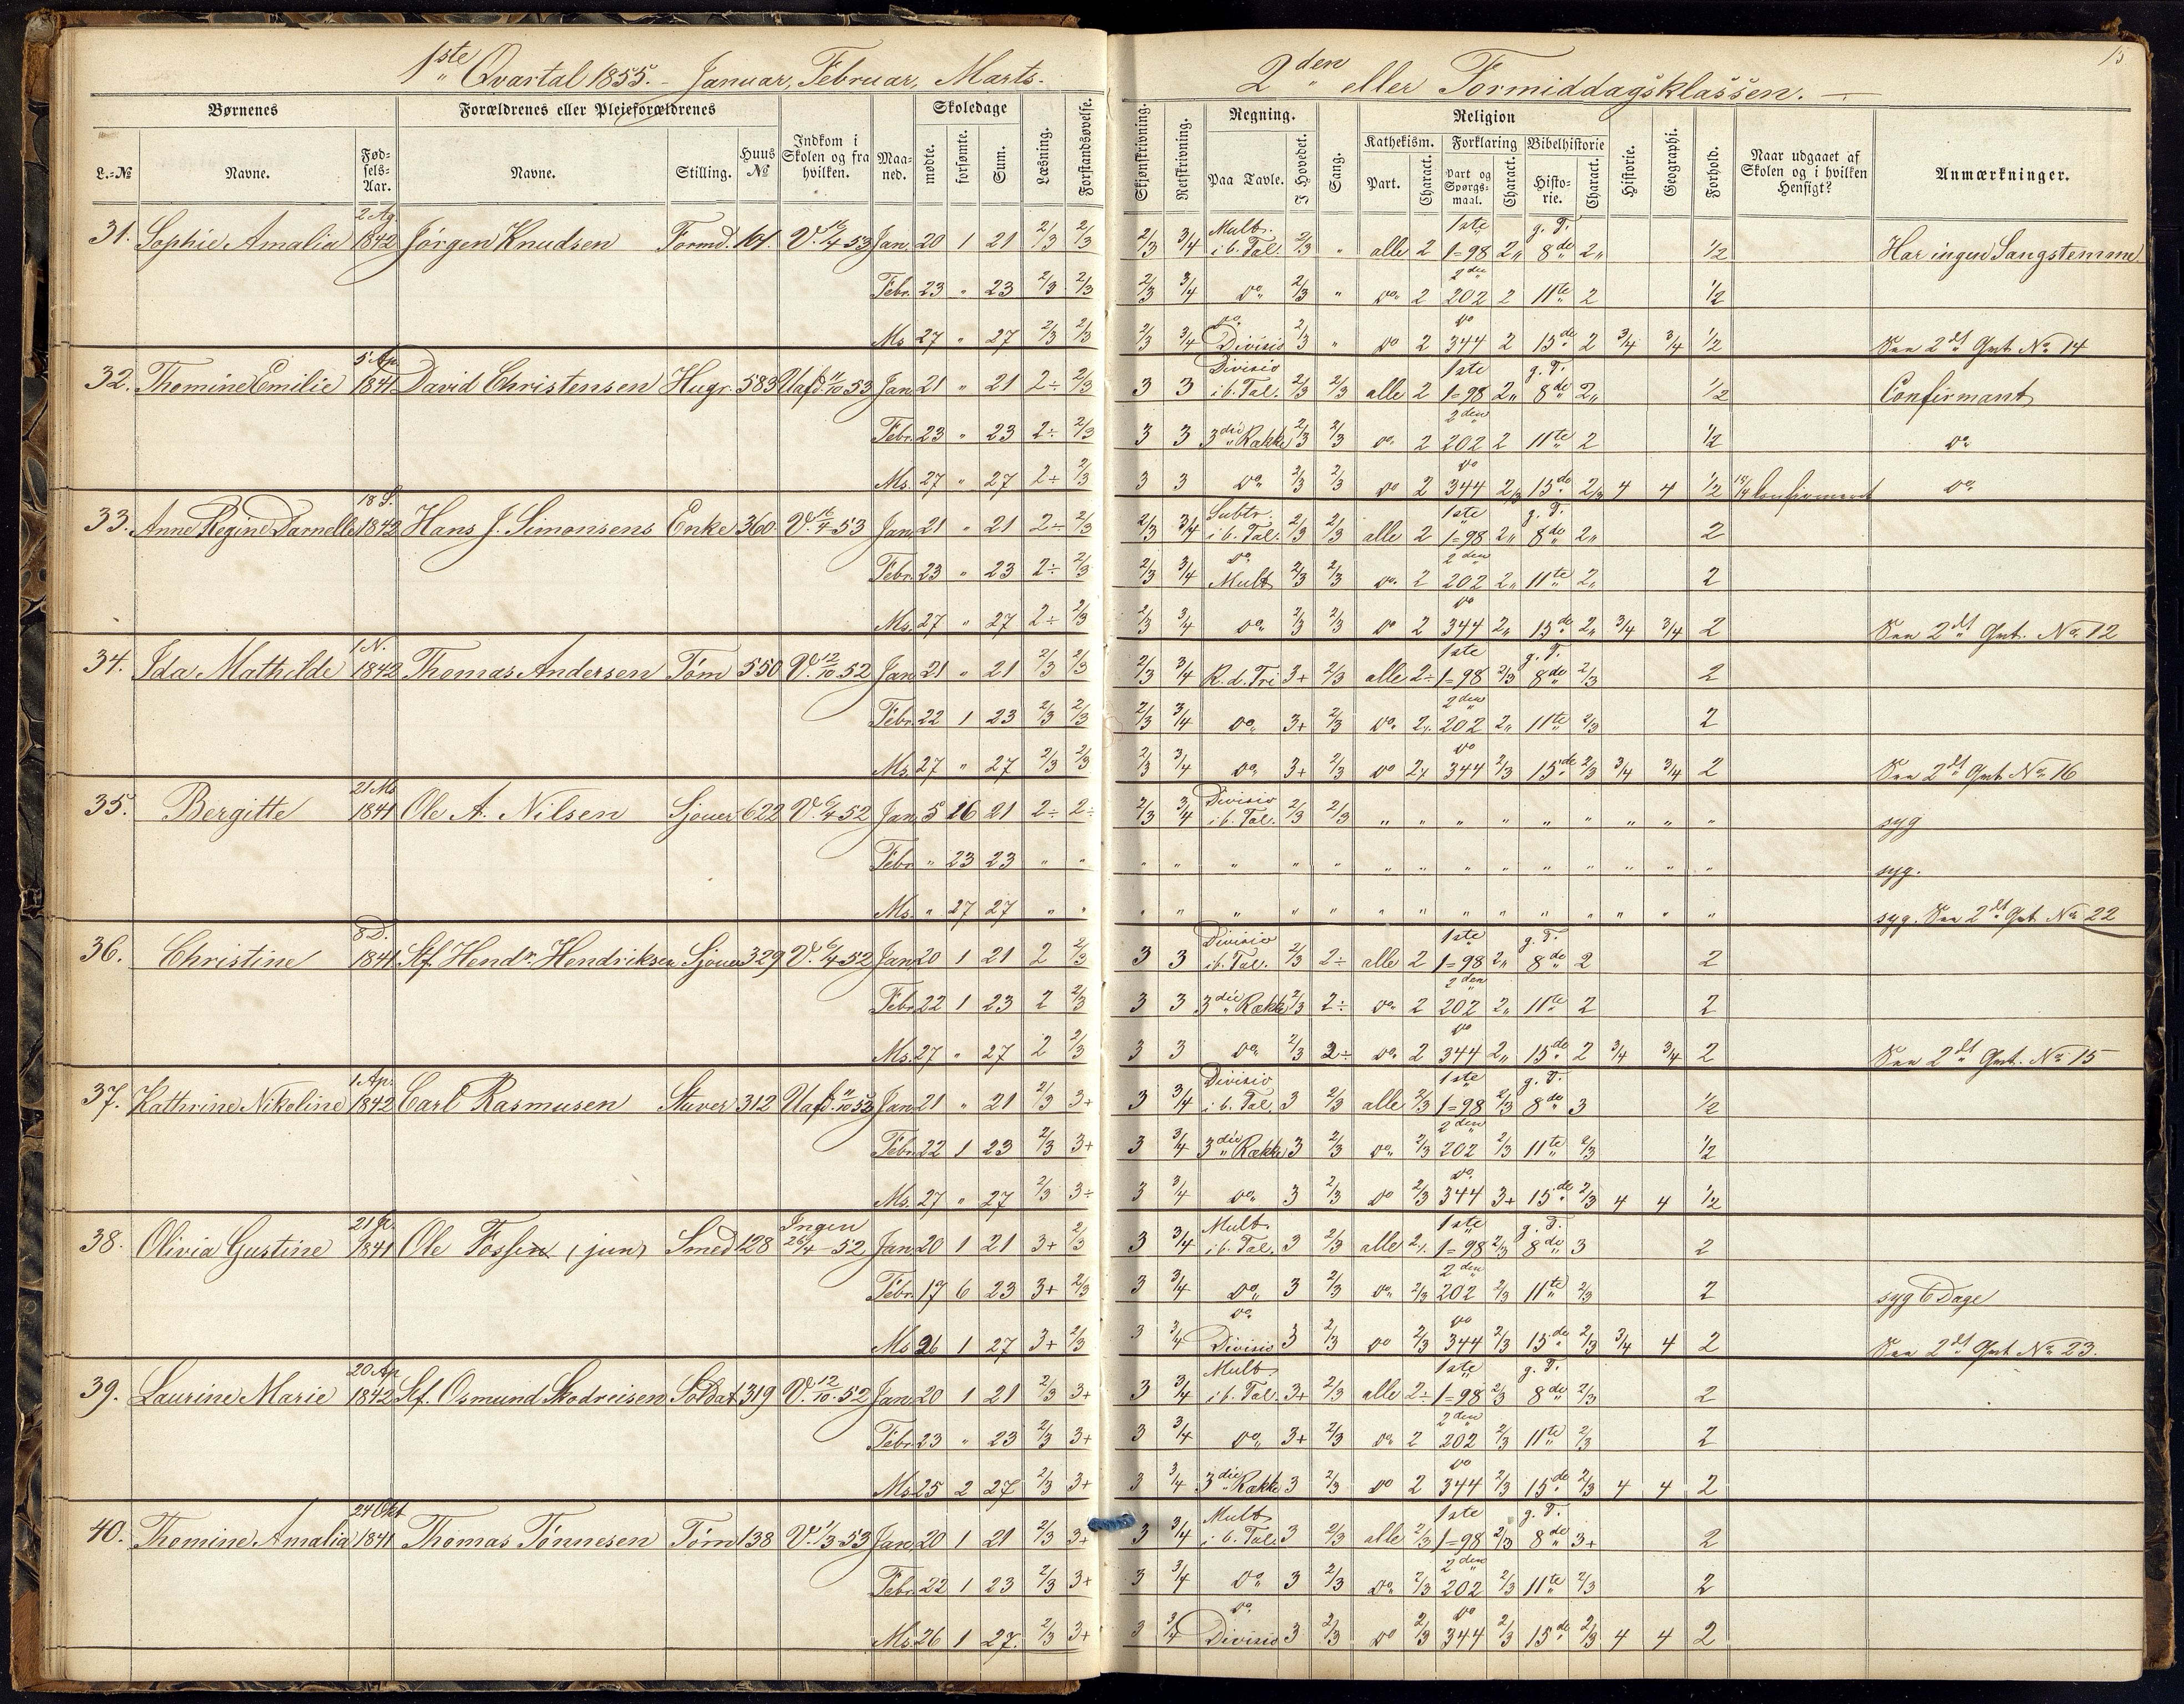 1ste Qvartal 1855. - Januar, Februar, Marts.
2den eller Formiddagsklassen. —
15
Børnenes
Forældrenes eller Plejeforældrenes
Indkom i Skolen og fra hvilken.
Maaned.
Skoledage
Læsning.
Forstandsøvelse.
L.-№
Navne.
Fødsels-Aar.
Navne.
Stilling.
Huus №
mødte.
forsømte.
Sum.
Skjønskrivning.
Retskrivning.
Regning.
Paa Tavle.
I Hovedet.
Sang.
Religion
Kathekism.
Part.
Charact.
Forklaring
Part og Spørgsmaal.
Charact.
Bibelhistorie
Historie.
Charact.
Historie.
Geographi.
Forhold.
Naar udgaaet af Skolen og i hvilken Hensigt?
Anmærkninger.
31. Sophie Amalia 2 Ag. 1842 Jørgen Knudsen Formd. 101. V. 19/4 53 Jan. 20 1 21 2/3 2/3 2/3 3/4 Mult. i b. Tal. 2/3 " alle 2 1ste 1=98 2" g. T. 8de 2" 1/2 Har ingen Sangstemme
Febr. 23 " 23 2/3 2/3 2/3 3/4 Do 2/3 " Do 2 2den 202 2 11te 2 1/2
Ms. 27 " 27 2/3 2/3 2/3 3/4 Do Divisio 2/3 " Do 2 Do 344 2 15de 2 3/4 3/4 1/2 See 2det Qvt. No 14
32. Thomine Emilie 5 Ap. 1841 David Christensen Hugr. 583 Uafd. 11/10 53 Jan. 21 " 21 2÷ 2/3 3 3 Divisio i b. Tal. 2/3 2/3 alle 2 1ste 1=98 2" g. T. 8de 2" 1/2 Confirmant
Febr. 23 " 23 2÷ 2/3 3 3 3die Række 2/3 2/3 Do 2 2den 202 2 11te 2 1/2 Do
Ms. 27 " 27 2÷ 2/3 3 3 Do 2/3 2/3 Do 2 Do 344 2/3 15de 2/3 4 4 1/2 15/4 Confirmeret Do
33. Anne Regine Darnelle 18 S. 1842 Hans J. Simonsens Enke 360 V. 19/4 53 Jan. 21 " 21 2÷ 2/3 2/3 3/4 Subtr. i b. Tal. 2/3 2/3 alle 2 1ste 1=98 2" g. T. 8de 2" 2
Febr. 23 " 23 2÷ 2/3 2/3 3/4 Do Mult 2/3 2/3 Do 2 2den 202 2" 11te 2" 2
Ms. 27 " 27 2÷ 2/3 2/3 3/4 Do 2/3 2/3 Do 2 Do 344 2" 15de 2" 3/4 3/4 2 See 2det Qvt. No 12
34. Ida Mathilde 1 N. 1842 Thomas Andersen Tøm 550 V. 12/10 52 Jan 21 " 21 2/3 2/3 2/3 3/4 R. d. Tri 3+ 2/3 alle 2÷ 1ste 1=98 2/3 g. T. 8de 2/3 2
Febr. 22 1 23 2/3 2/3 2/3 3/4 Do 3+ 2/3 Do 2÷ 2den 202 2" 11te 2/3 2
Ms. 27 " 27 2/3 2/3 2/3 3/4 Do 3+ 2/3 Do 2÷ Do 344 2/3 15de 2/3 3/4 3/4 2 See 2det Qvt. No 16
35. Bergitte 21 Ms 1841 Ole A. Nilsen Sjouer 622 V. 6/4 52 Jan. 5 16 21 2÷ 2÷ 2/3 3/4 Divisio i b. Tal. 2/3 2/3 " " " " " " " " " syg
Febr. " 23 23 " " " " " " " " " " " " " " " " syg.
Ms. " 27 27 " " " " " " " " " " " " " " " " syg. See 2det Qvt. No 22
36. Christine 8 D. 1841 Stf. Hendr. Hendriksen Sjouer 329 V. 6/4 52 Jan. 20 1 21 2 2/3 3 3 Divisio i b. Tal. 2/3 2÷ alle 2 1ste 1=98 2" g. T. 8de 2 2
Febr. 22 1 23 2 2/3 3 3 3die Række 2/3 2÷ Do 2 2den 202 2" 11te 2 2
Ms. 27 " 27 2 2/3 3 3 Do 2/3 2÷ Do 2 Do 344 2" 15de 2 3/4 3/4 2 See 2det Qvt. No 15
37. Kathrine Nikoline 1 Ap. 1842 Carl Rasmusen Stuver 312 Uafd. 11/10 53 Jan. 21 " 21 2/3 3+ 3 3/4 Divisio i b. Tal. 3 2/3 alle 2/3 1ste 1=98 2/3 g. T. 8de 3 1/2
Febr. 22 1 23 2/3 3+ 3 3/4 3die Række 3 2/3 Do 2/3 2den 202 2/3 11te 2/3 1/2
Ms. 27 " 27 2/3 3÷ 3 3/4 Do 3 2/3 Do 2/3 Do 344 3+ 15de 2/3 4 4 1/2
38. Olivia Gustine 1841 Ole Fossen (jun) Smed 128 Ingen 26/4 52 Jan. 20 1 21 3+ 2/3 3 3/4 Mult. i b. Tal. 3 2/3 alle 2÷ 1ste 1=98 2/3 g. T. 8de 3 2
Febr. 17 6 23 3+ 2/3 3 3/4 Do 3 2/3 Do 2/3 2den 202 2/3 11te 2/3 2 syg 6 Dage
Ms. 26 1 27 3+ 2/3 3 3/4 Do Divisio 3 2/3 Do 2/3 Do 344 2/3 15de 2/3 3/4 4 2 See 2det Qvt. No 23.
39. Laurine Marie 20 Ap 1842 Stf. Osmund Skodreisen Soldat 319 V. 12/10 52 Jan. 20 1 21 2/3 3+ 3 3/4 Mult. i b. Tal. 3+ 2/3 alle 2÷ 1ste 1=98 2/3 g. T. 8de 2/3 2
Febr. 23 " 23 2/3 3+ 3 3/4 Do 3+ 2/3 Do 2 2den 202 2/3 11te 2/3 2
Ms 25 2 27 2/3 3+ 3 3/4 3die Række 3 2/3 Do 2 Do 344 2/3 15de 2/3 4 4 2
40. Thomine Amalia 24 Okt 1841 Thomas Tønnesen Tøm 138 V. 1/3 53 Jan. 20 1 21 2/3 3+ 3 3/4 Mult i b. Tal. 3 2/3 alle 2/3 1ste 1=98 2/3 g. T. 8de 3+ 2
Febr. 22 1 23 2/3 3+ 3 3/4 Do 3 2/3 Do 2/3 2den 202 2/3 11te 2/3 2
Ms. 26 1 27. 2/3 3+ 3 3/4 Do Divisio 3 2/3 Do 2/3 Do 344 2/3 15de 2/3 4 4 2